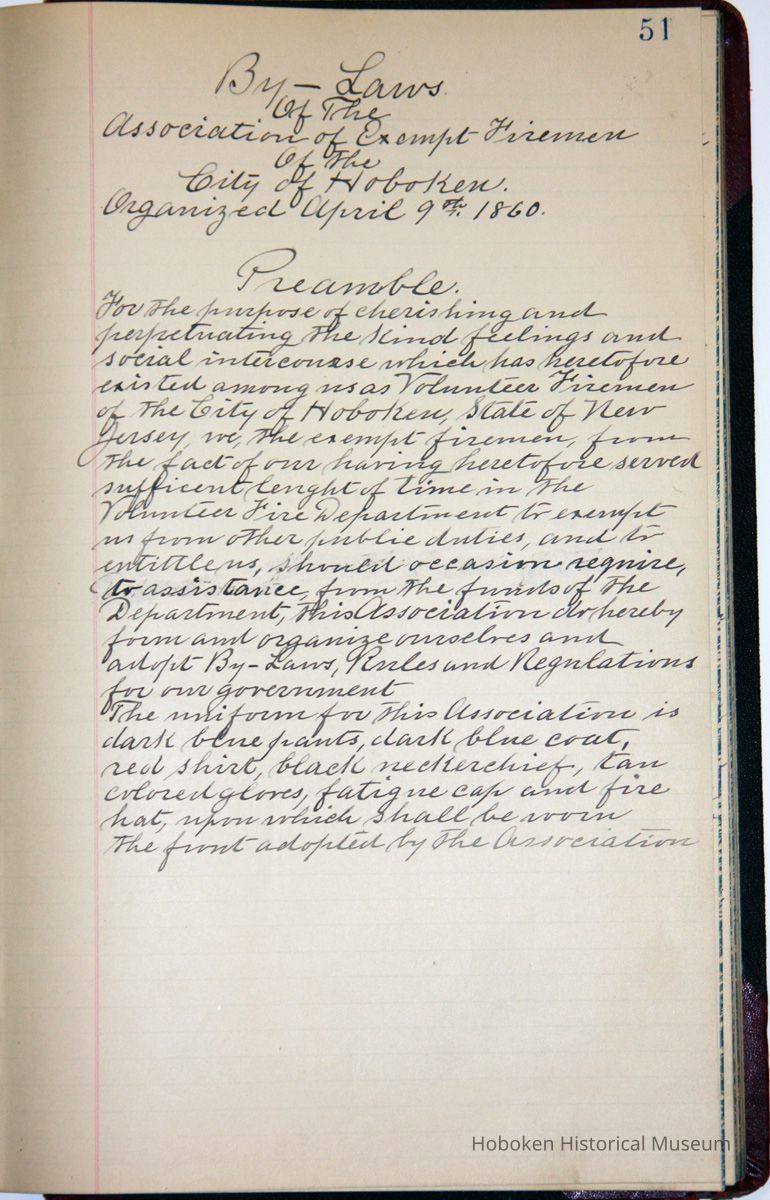 51
By-Laws.
Of The
Association of Exempt Firemen
Of the
City of Hoboken.
Organized April 9th. 1860.
Preamble.
For the purpose of cherishing and
perpetuating the kind feelings and
social intercourse which has heretofore
existed among us as Volunteer Firemen
of the City of Hoboken, State of New
Jersey, we, the exempt firemen, from
the fact of our having heretofore served
sufficent lenght of time in the
Volunteer Fire Department to exempt
us from other public duties, and to
entittle us, should occasion require,
to assistance, from the funds of the
Department, this Association do hereby
form and organize ourselves and
adopt By-Laws, Rules and Regulations
for our government
The uniform for this Association is
dark blue pants, dark blue coat,
red shirt, black neckerchief, tan
colored gloves, fatigue cap and fire
hat, upon which shall be worn
the front adopted by the Association
Hoboken Historical Museum